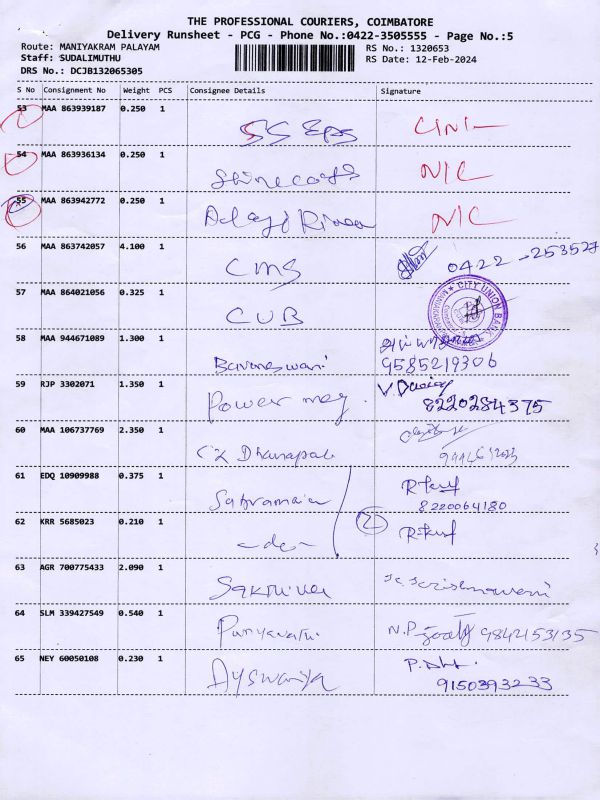 THE PROFESSIONAL COURIERS, COIMBATORE
Delivery Runsheet - PCG - Phone No.:0422-3505555 - Page No.:5
Route: MANIYAKRAM PALAYAM RS No.: 1320653
Staff: SUDALIMUTHU RS Date: 12-Feb-2024
DRS No.: DCJB132065305
S No Consignment No Weight PCS Consignee Details Signature
53 MAA 863939187 0.250 1 SS EPS
54 MAA 863936134 0.250 1 NIC
55 MAA 863942772 0.250 1 NIC
56 MAA 863742057 4.100 1 CMS 0422-253527
57 MAA 864021056 0.325 1 CUB CITY UNION BANK
58 MAA 944671089 1.300 1 9585219306
59 RJP 3302071 1.350 1 Power mag. 8220284375
60 MAA 106737769 2.350 1 CK Dhanapal
61 EDQ 10909988 0.375 1 8220064180
62 KRR 5685023 0.210 1 -do- 2
63 AGR 700775433 2.090 1 Sakthivel
64 SLM 339427549 0.540 1 9842153135
65 NEY 60050108 0.230 1 9150393233